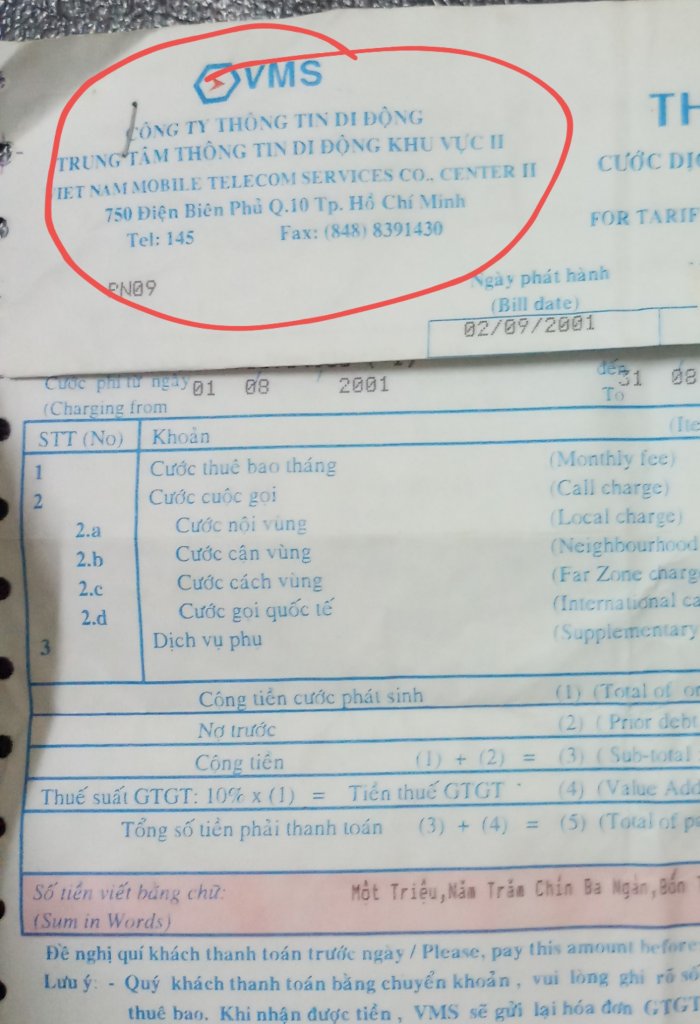 VMS
CÔNG TY THÔNG TIN DI ĐỘNG
TRUNG TÂM THÔNG TIN DI ĐỘNG KHU VỰC II
IET NAM MOBILE TELECOM SERVICES CO., CENTER II
750 Điện Biên Phủ Q.10 Tp. Hồ Chí Minh
Tel: 145 Fax: (848) 8391430
TH
CƯỚC DỊC
FOR TARIF
PN09
Ngày phát hành
(Bill date)
02/09/2001
Cước phí từ ngày 01 08 2001 đến 31 08
(Charging from To
STT (No) Khoản (Ite
1 Cước thuê bao tháng (Monthly fee)
2 Cước cuộc gọi (Call charge)
2.a Cước nội vùng (Local charge)
2.b Cước cận vùng (Neighbourhood
2.c Cước cách vùng (Far Zone charg
2.d Cước gọi quốc tế (International ca
3 Dịch vụ phụ (Supplementary
Cộng tiền cước phát sinh (1) (Total of or
Nợ trước (2) ( Prior debt
Cộng tiền (1) + (2) = (3) ( Sub-total
Thuế suất GTGT: 10% x (1) = Tiền thuế GTGT (4) (Value Add
Tổng số tiền phải thanh toán (3) + (4) = (5) (Total of pa
Số tiền viết bằng chữ: Một Triệu,Năm Trăm Chín Ba Ngàn,Bốn T
(Sum in Words)
Đề nghị quí khách thanh toán trước ngày / Please, pay this amount before
Lưu ý: - Quý khách thanh toán bằng chuyển khoản , vui lòng ghi rõ số
thuê bao. Khi nhận được tiền , VMS sẽ gửi lại hóa đơn GTGT